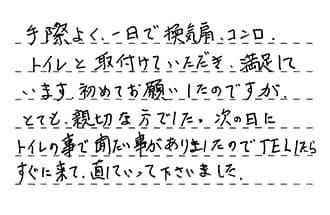 手際よく、一日で換気扇、コンロ、
トイレと取付けていただき、満足して
います。初めてお願いしたのですが、
とても、親切な方でした。次の日に
トイレの事で聞たい事がありましたのでTELしたら
すぐに来て、直していって下さいました。